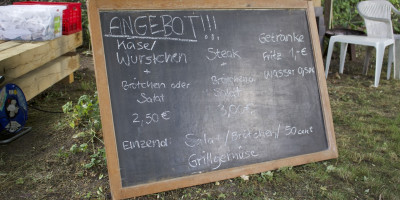 ANGEBOT!!!
Käse/
Würstchen
+
Brötchen oder
Salat
2,50 €
Steak
Salat
3,00 €
Getränke
Fritz 1,-€
Wasser 0,50€
EINZELND: Salat/Brötchen/50 cent
Grillgemüse